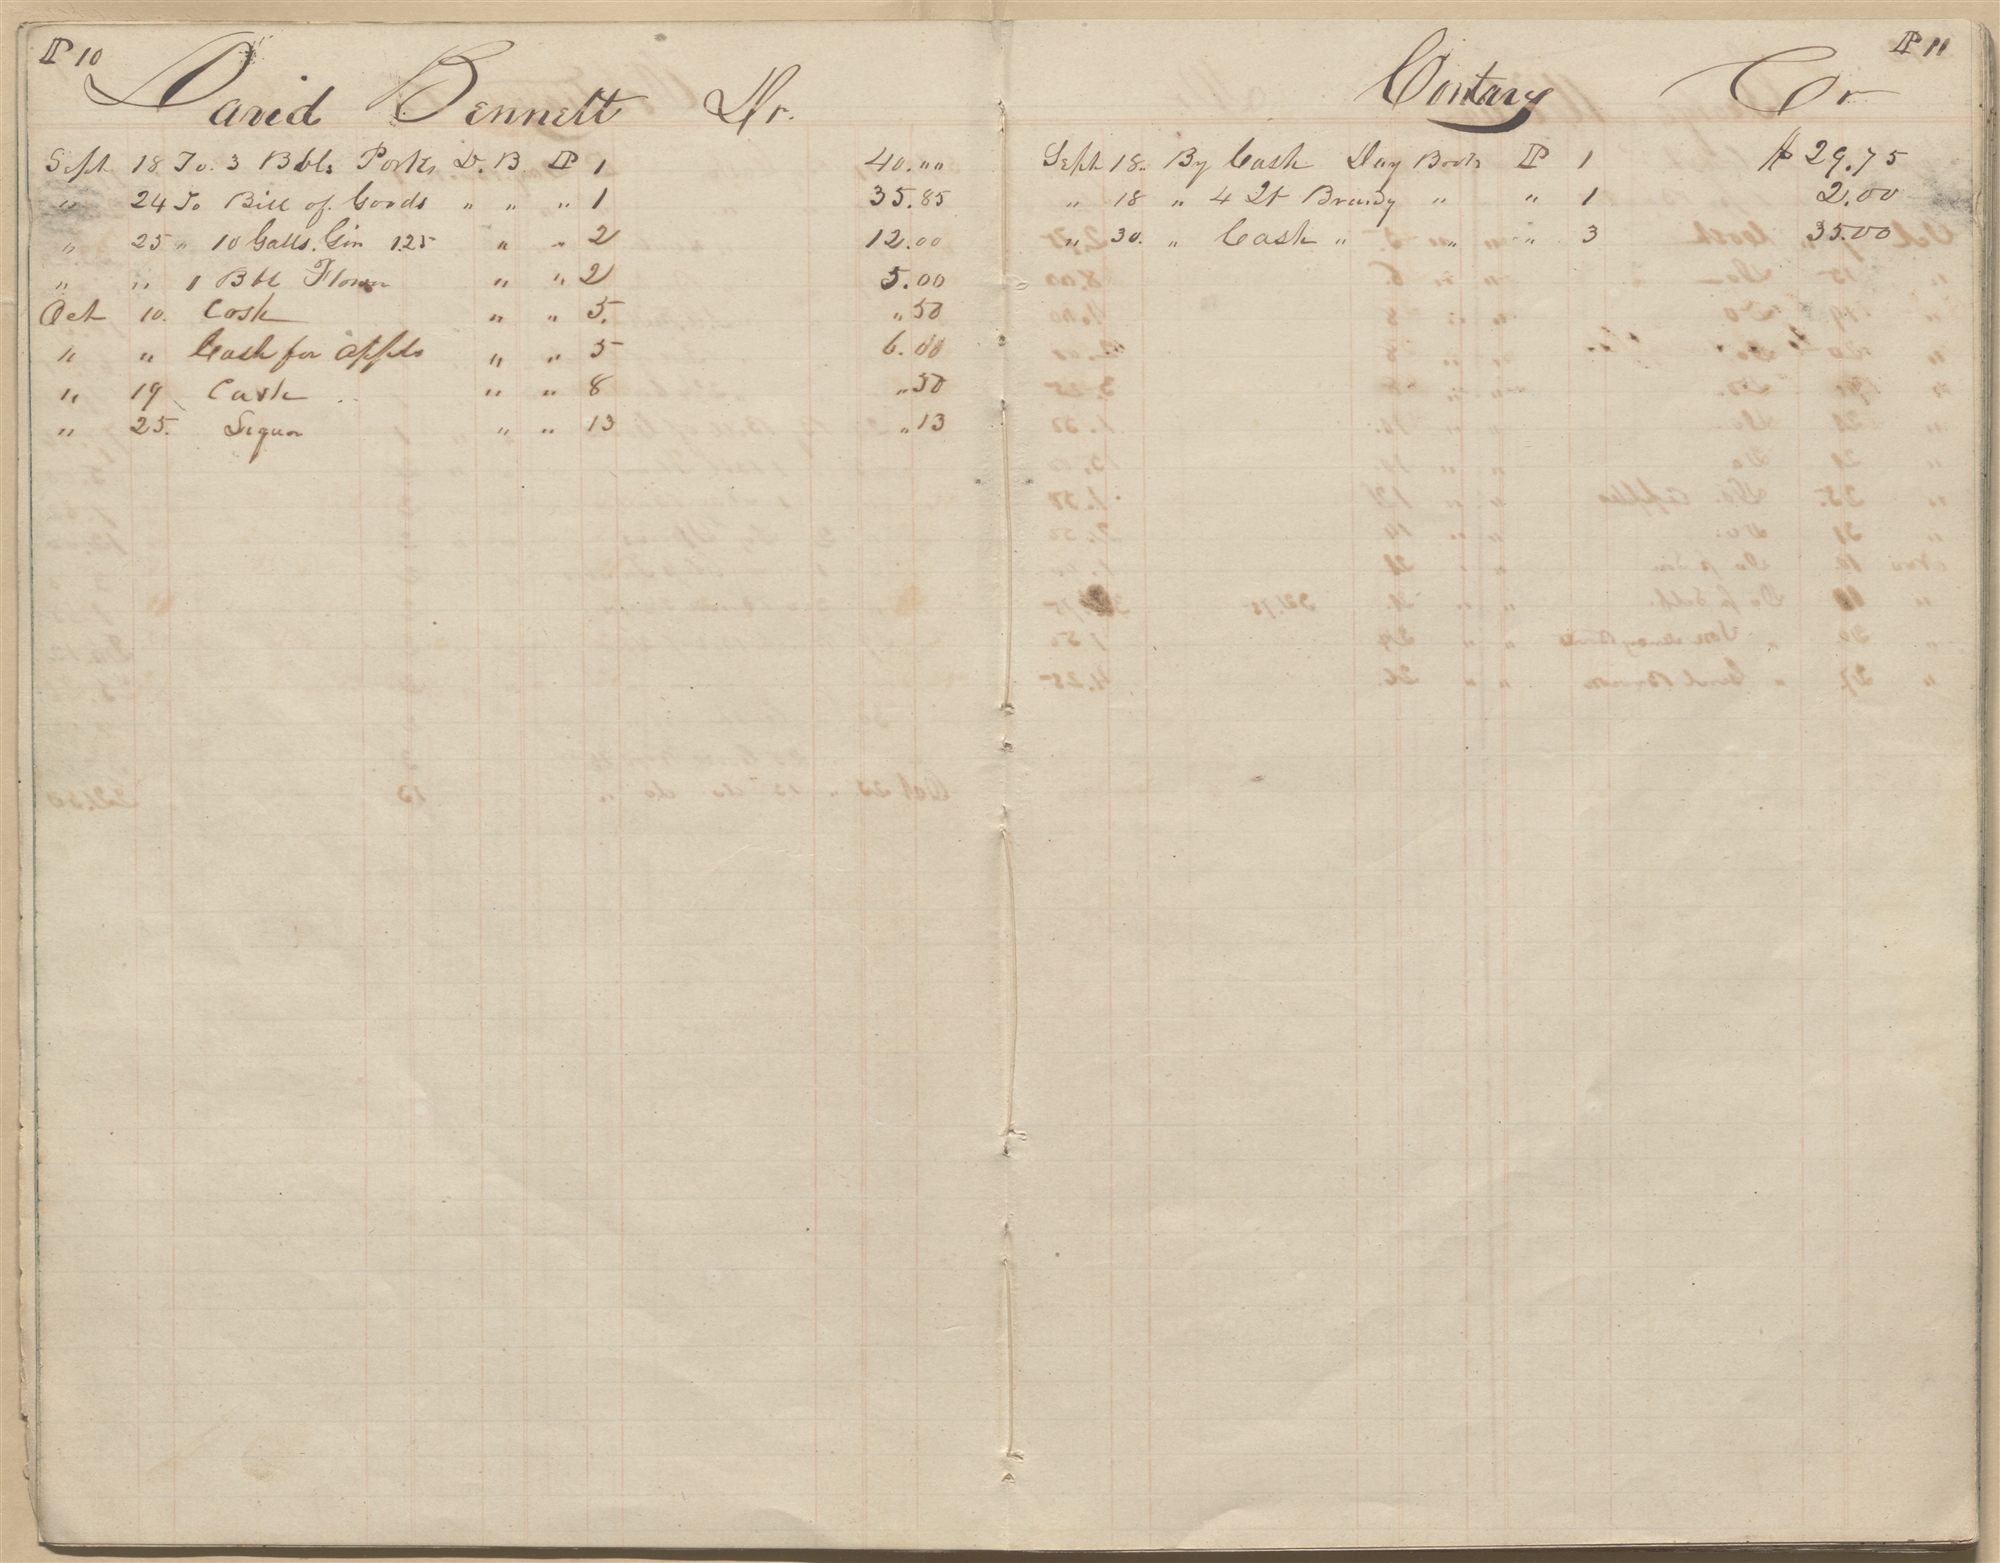 P 10
David Bennett Dr.
Sept 18 To. 3 Bbls Porks D. B. P 1 40.00
" 24 To Bill of Goods " " " 1 35.85
" 25 " 10 Galls. Gin 125 " " 2 12.00
" " 1 Bbl Flour " " 2 5.00
Oct 10. Cash " " 5. " 50
" " Cash for appls " " 5 6.00
" 19 Cash " " 8 " 50
" 25. Liquor " " 13 " 13
P 11
Contary Cr
Sept 18. By Cash Day Book P 1 $ 29.75
" 18 " 4 2t Brandy " " 1 2.00
" 30. " Cash " " " 3 35.00